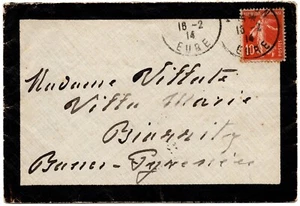 18 -2
14
EURE
18 -2
14
EURE
10
Madame Villate
Villa Marie
Biarritz
Basses-Pyrénées